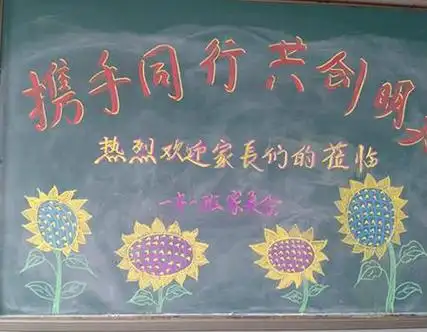 携手同行共创明
热烈欢迎家長们的莅临
一年一班家长会